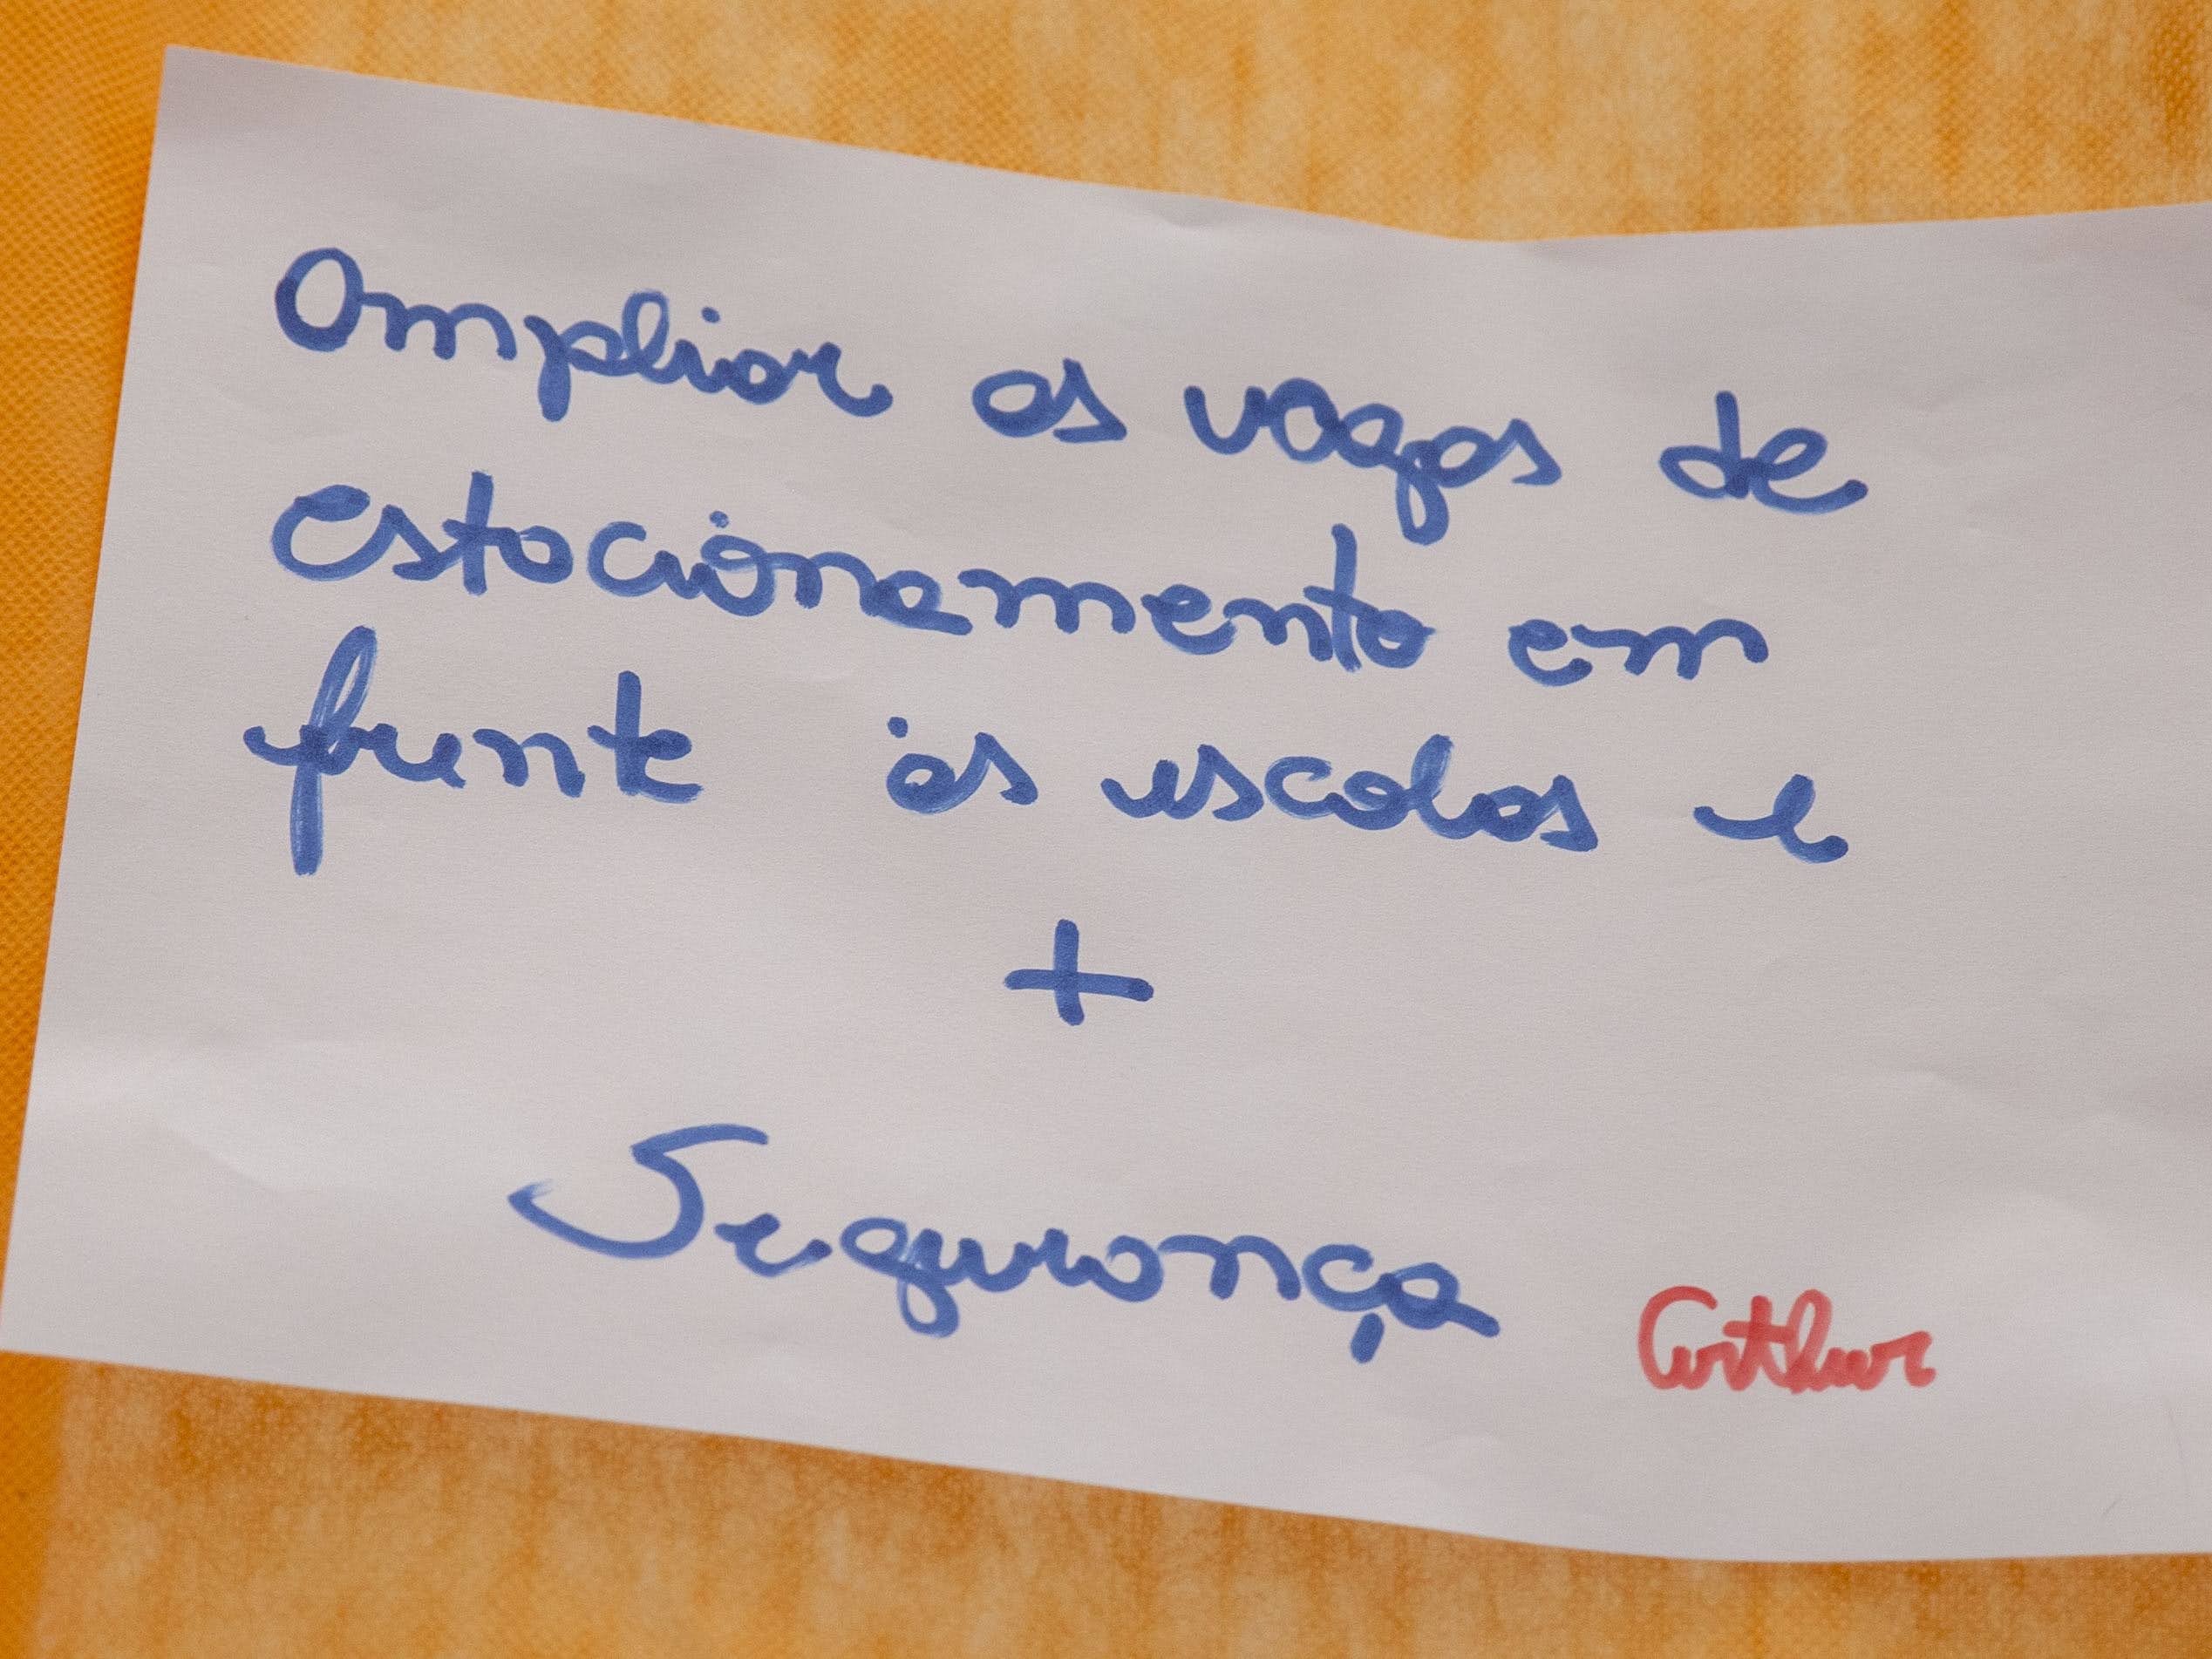 Ampliar as vagas de
estacionamento em
frente às escolas e
+
Segurança
Arthur